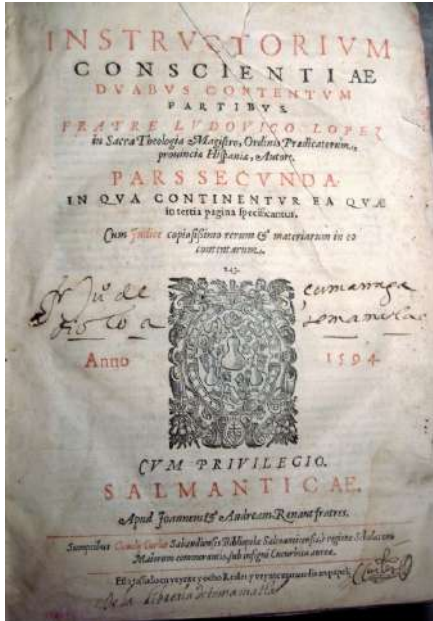 INSTRVCTORIVM
CONSCIENTIAE
DVABVS CONTENTVM
PARTIBVS.
FRATRE LVDOVICO LOPEZ
in Sacra Theologia Magistro, Ordinis Prædicatorum,
prouincia Hispaniæ, Autore.
PARS SECVNDA.
IN QVA CONTINENTVR EA QVÆ
in tertia pagina specificantur.
Cum Indice copiosissimo rerum & materiarum in eo
contentarum.
de
Anno 1594
CVM PRIVILEGIO.
SALMANTICAE.
Apud Joannem & Andream Renaut fratres.
Sumptibus Claudij Curlet Sabaudiensis Bibliopolæ Salmanticensis è regione Scholarum
Maiorum commorantis, sub insigni Cucurbitæ aureæ.
Està tassado en veynte y ocho Reales y en papel.
De la libreria de